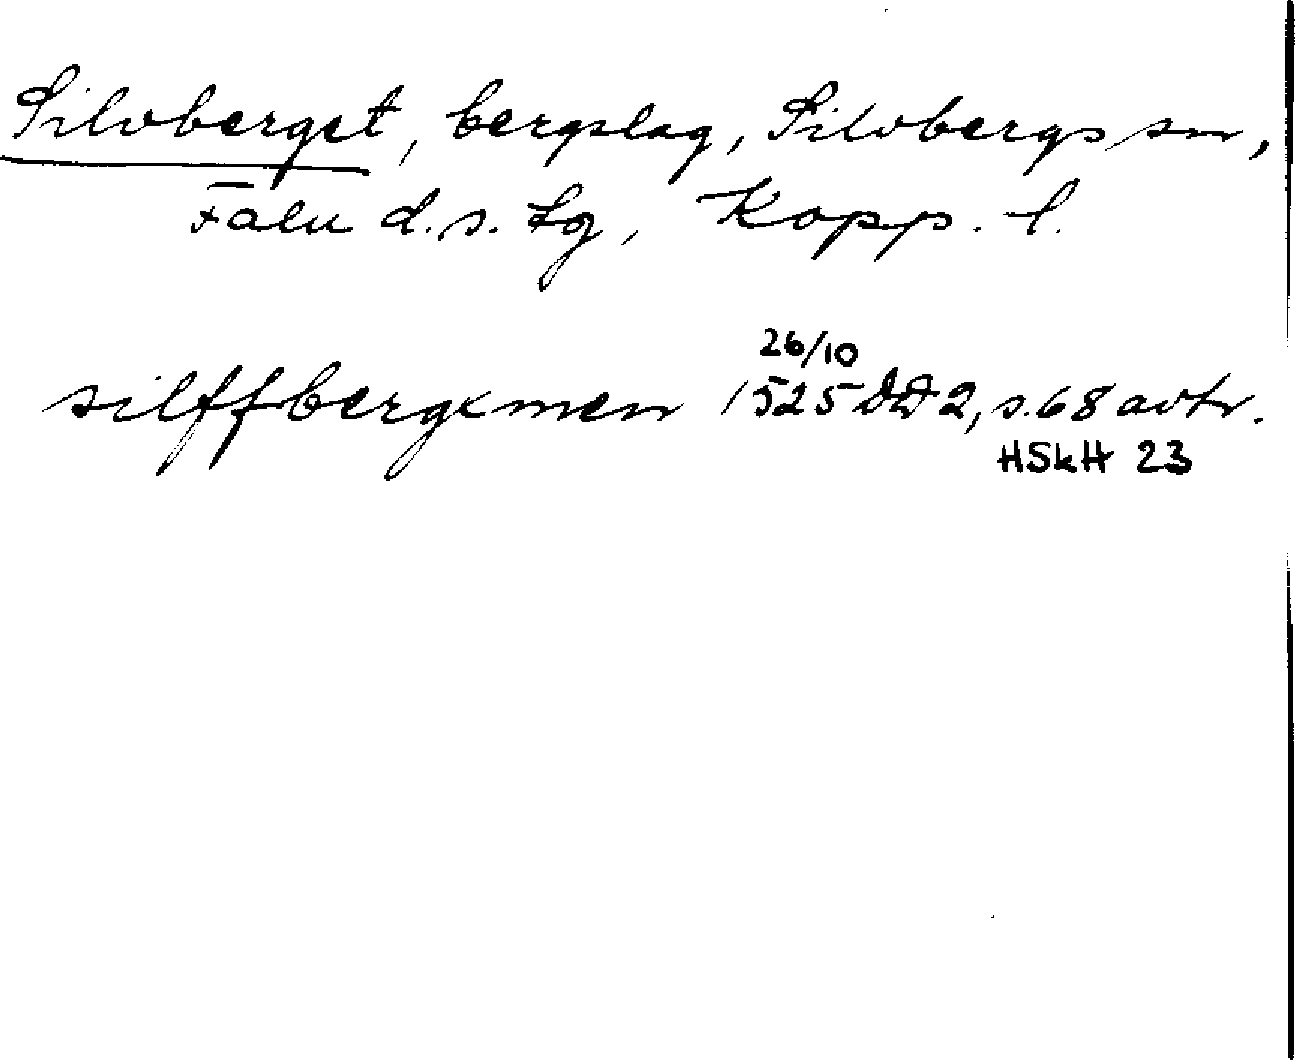 Silvberget, bergslag, Silvbergs sn,
Falu d.s. tg, Kopp. l.
26/10
silffbergxmen 1525 DD 2, s. 68 avtr.
HSkH 23